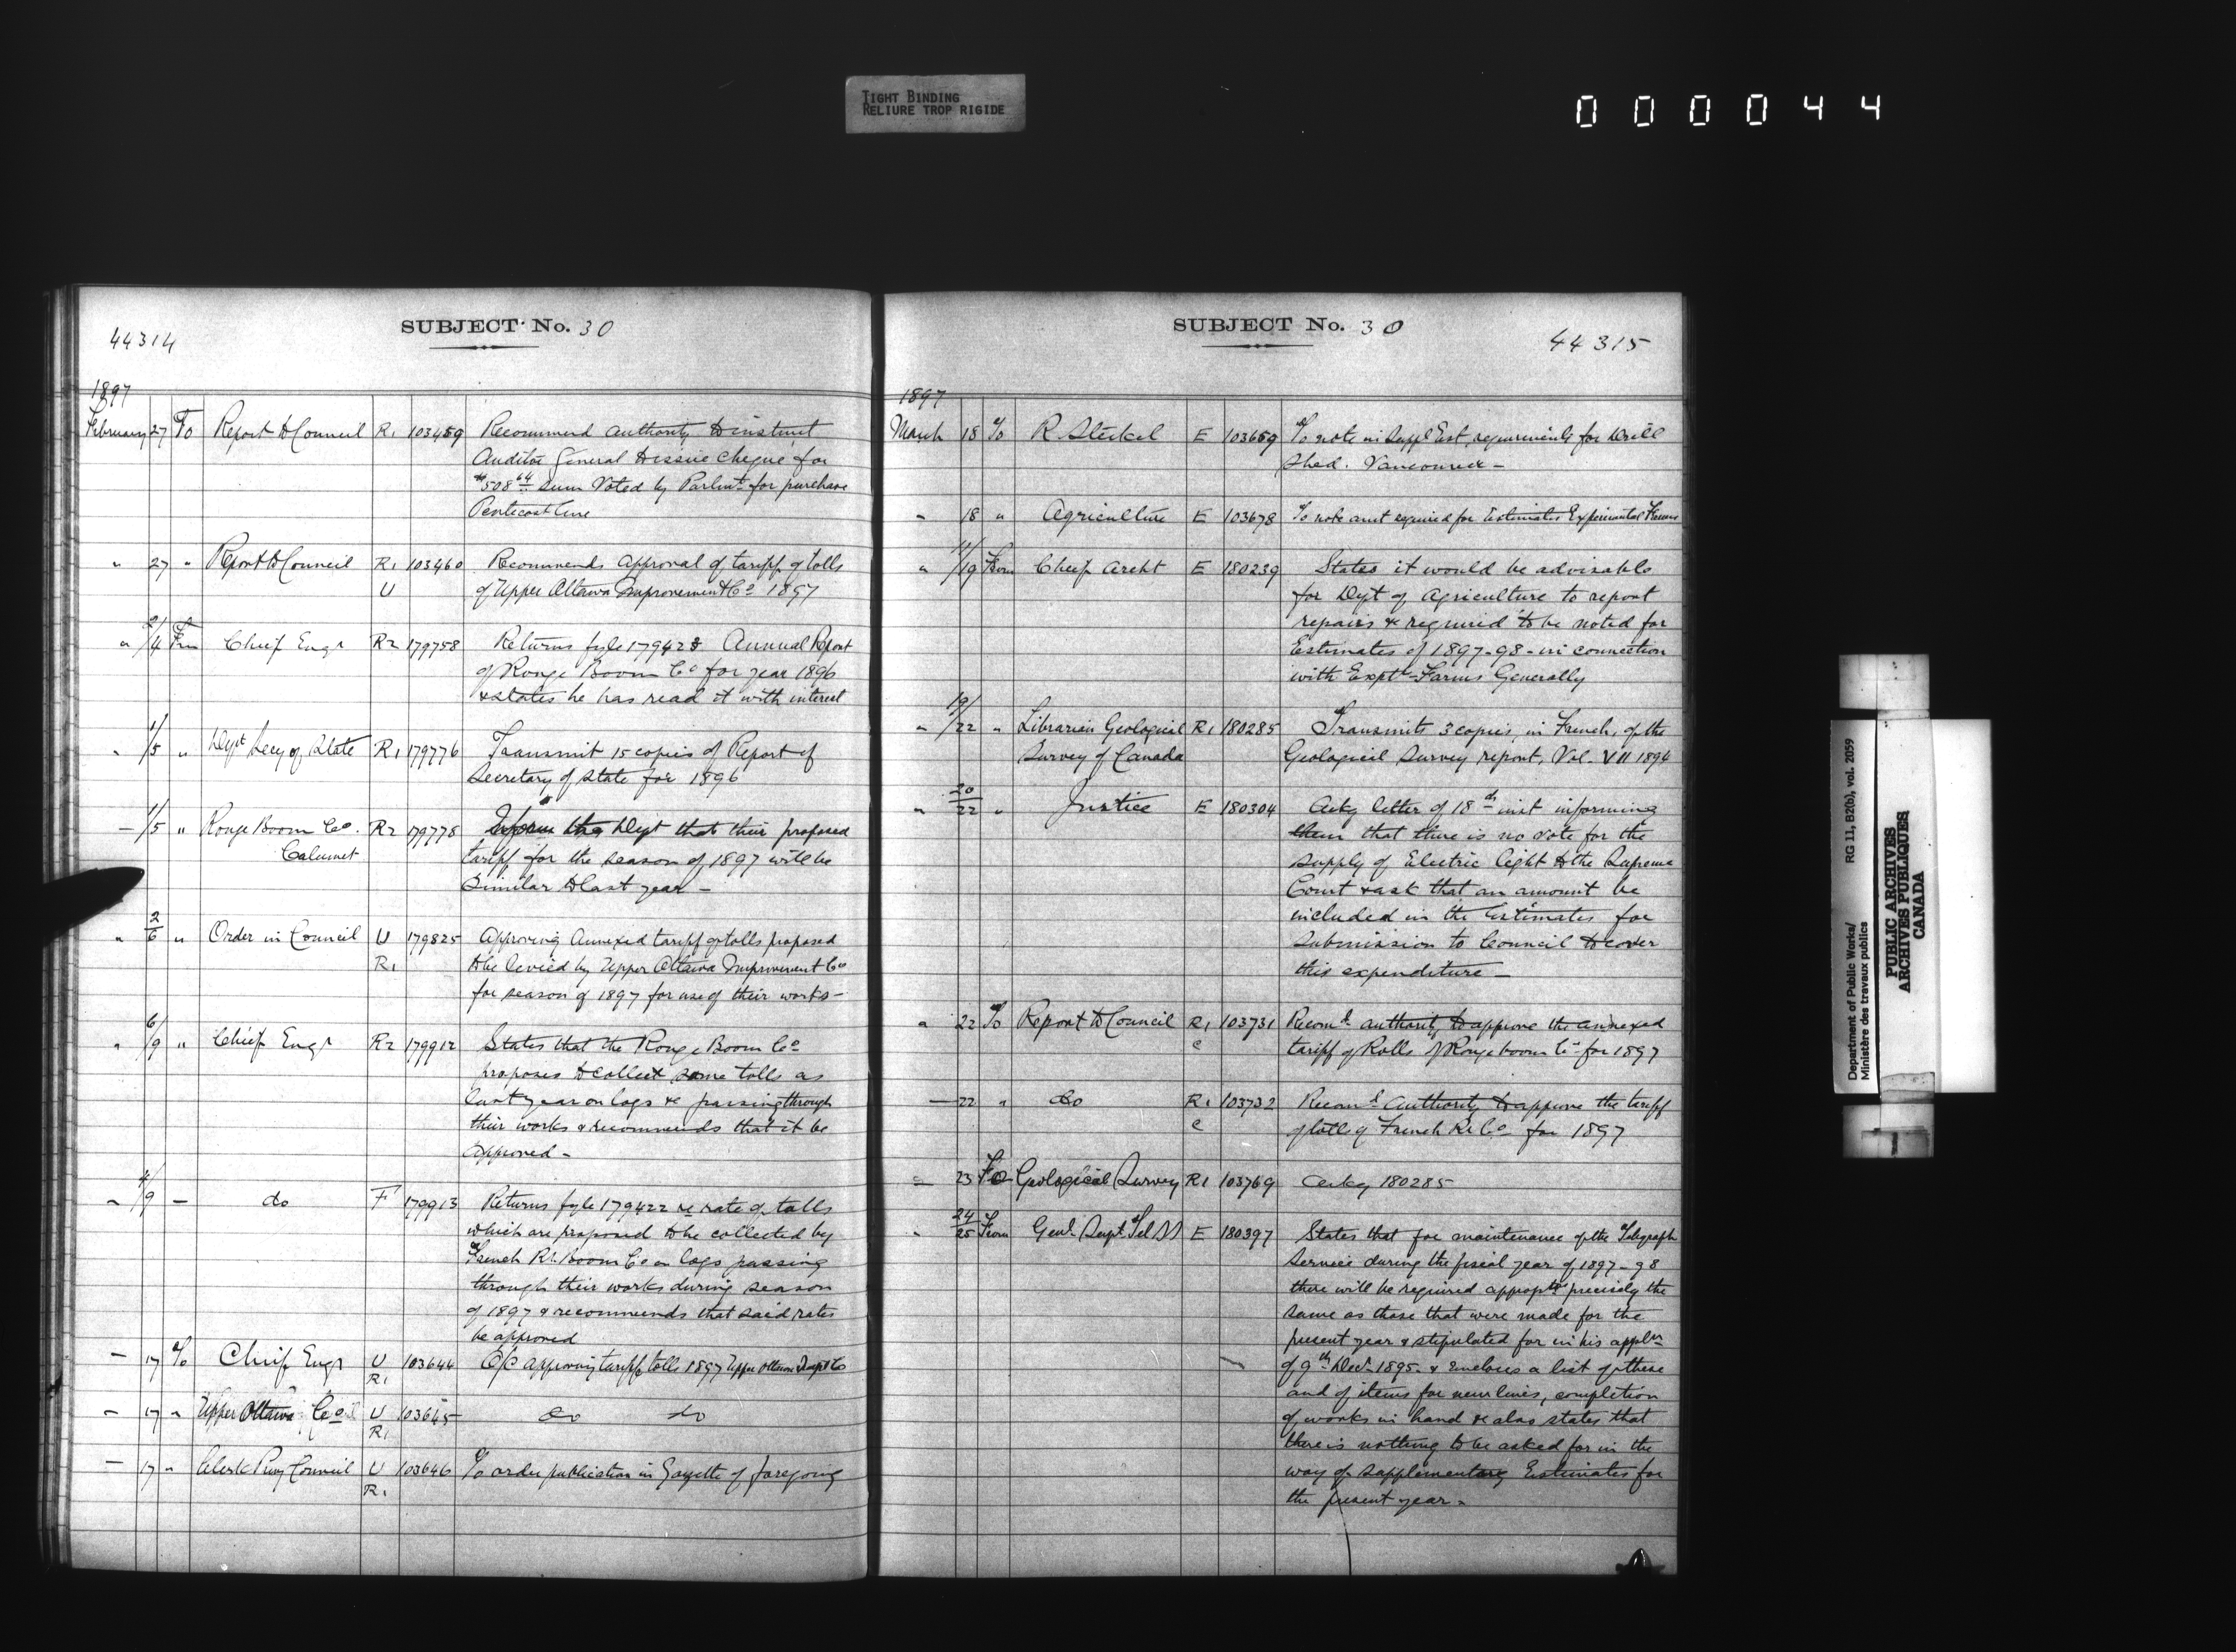 TIGHT BINDING
RELIURE TROP RIGIDE
000044
44314
SUBJECT No. 30
1897
February 27 To Report to Council R1 103459 Recommend authority to instruct
Auditor General to issue cheque for
$508 64 sum voted by Parlmt for purchase
Pentecost line
" 27 " Report to Council R1 103460 Recommends approval of tariff of tolls
U of Upper Ottawa Improvement Co 1897
" 2/4 From Chief Engr R2 179758 Returns fyle 179428 Annual Report
of Rouge Boom Co for year 1896
& states he has read it with interest
" 1/5 " Dept Secy of State R1 179776 Transmit 15 copies of Report of
Secretary of State for 1896
— 1/5 " Rouge Boom Co. R2 179778 Inform the Dept that their proposed
Calumet tariff for the season of 1897 will be
similar to last year —
" 2/6 " Order in Council U 179825 Approving annexed tariff of tolls proposed
R1 to be levied by Upper Ottawa Improvement Co
for season of 1897 for use of their works —
" 6/9 " Chief Engr R2 179912 States that the Rouge Boom Co
proposes to collect same tolls as
last year on logs &c passing through
their works & recommends that it be
approved —
" 4/9 — do F 179913 Returns fyle 179422 re rate of tolls
which are proposed to be collected by
French Rr. Boom Co on logs passing
through their works during season
of 1897 & recommends that said rates
be approved
— 17 To Chief Engr U 103644 O/C approving tariff tolls 1897 Upper Ottawa Impt Co
R1
— 17 " Upper Ottawa Co U 103645 do do
R1
— 17 " Clerk Privy Council U 103646 To order publication in Gazette of foregoing
R1
SUBJECT No. 30
44315
1897
March 18 To R Steckel E 103659 To note in Suppl Est, requirements for Drill
Shed. Vancouver —
" 18 " Agriculture E 103678 To note amt required for Estimates Experimental Farms
" 11/19 From Chief Archt E 180239 States it would be advisable
for Dept of Agriculture to report
repairs &c required to be noted for
Estimates of 1897-98 - in connection
with Exptl Farms Generally
" 19/22 " Librarian Geological R1 180285 Transmits 3 copies, in French, of the
Survey of Canada Geological Survey report, Vol. VII 1894
" 20/22 " Justice E 180304 Ackg letter of 18th inst informing
them that there is no vote for the
supply of Electric light to the Supreme
Court & ask that an amount be
included in the Estimates for
submission to Council to cover
this expenditure —
" 22 To Report to Council R1 103731 Recomd authority to approve the annexed
c tariff of Rolls of Rouge boom Co for 1897
— 22 " do R1 103732 Recomd Authority to approve the tariff
c of tolls of French Rr Co for 1897
" 23 To Geological Survey R1 103769 Ackg 180285
" 24/25 From Genl Supt Tel E 180397 States that for maintenance of the Telegraph
Service during the fiscal year of 1897-98
there will be required appoptns precisely the
same as those that were made for the
present year & stipulated for in his appln
of 9th Decr 1895. & encloses a list of these
and of items for new lines, completion
of works in hand & also states that
there is nothing to be asked for in the
way of supplementary Estimates for
the present year.
Department of Public Works/
Ministère des travaux publics
RG 11, B2(b), vol. 2059
PUBLIC ARCHIVES
ARCHIVES PUBLIQUES
CANADA